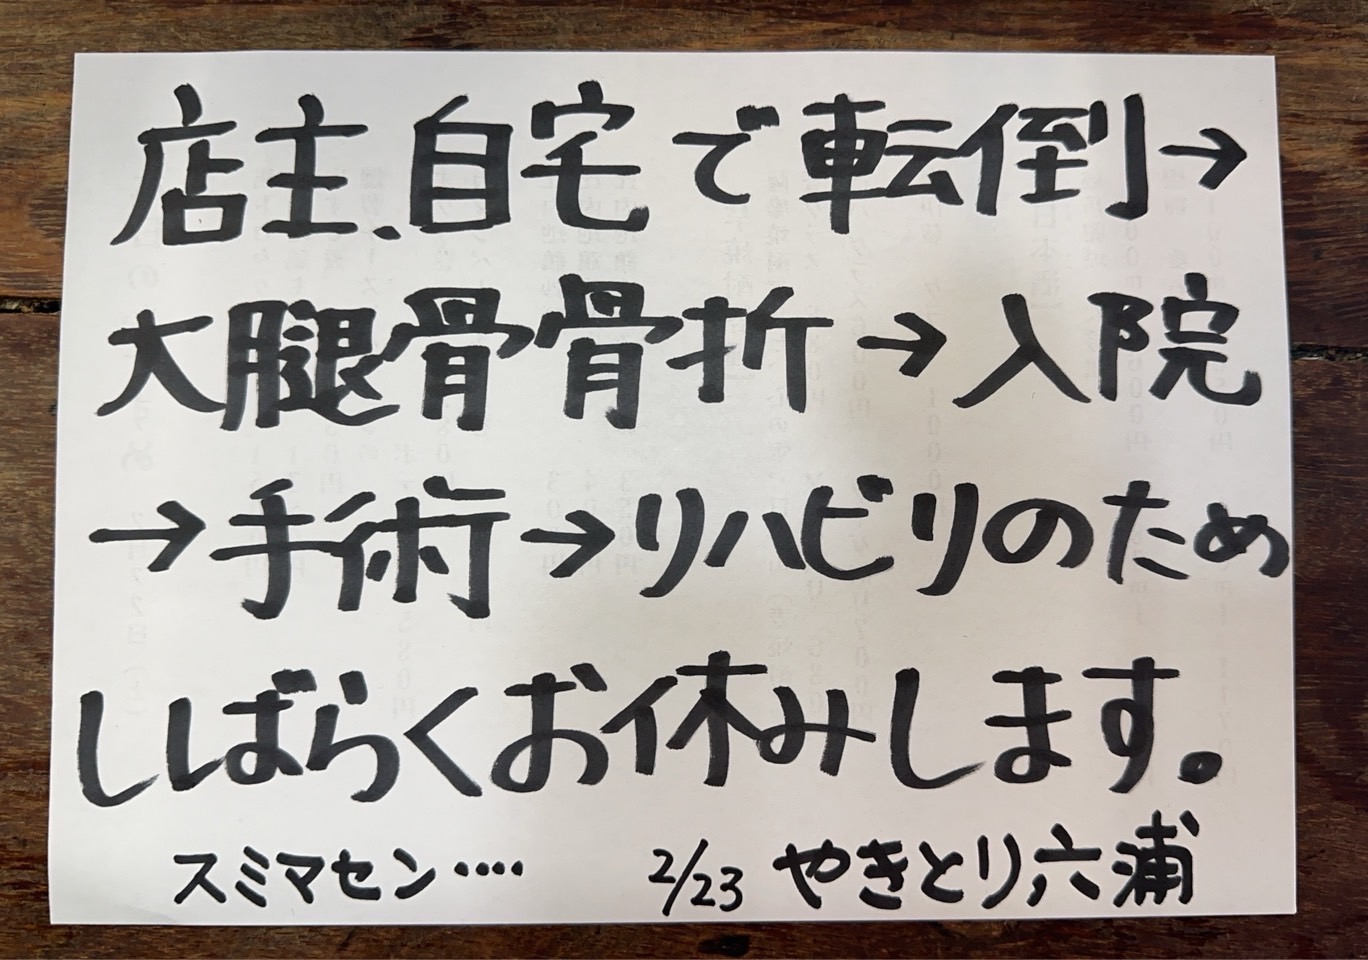 店主、自宅で転倒→
大腿骨骨折→入院
→手術→リハビリのため
しばらくお休みします。
スミマセン‥‥ 2/23 やきとり六浦